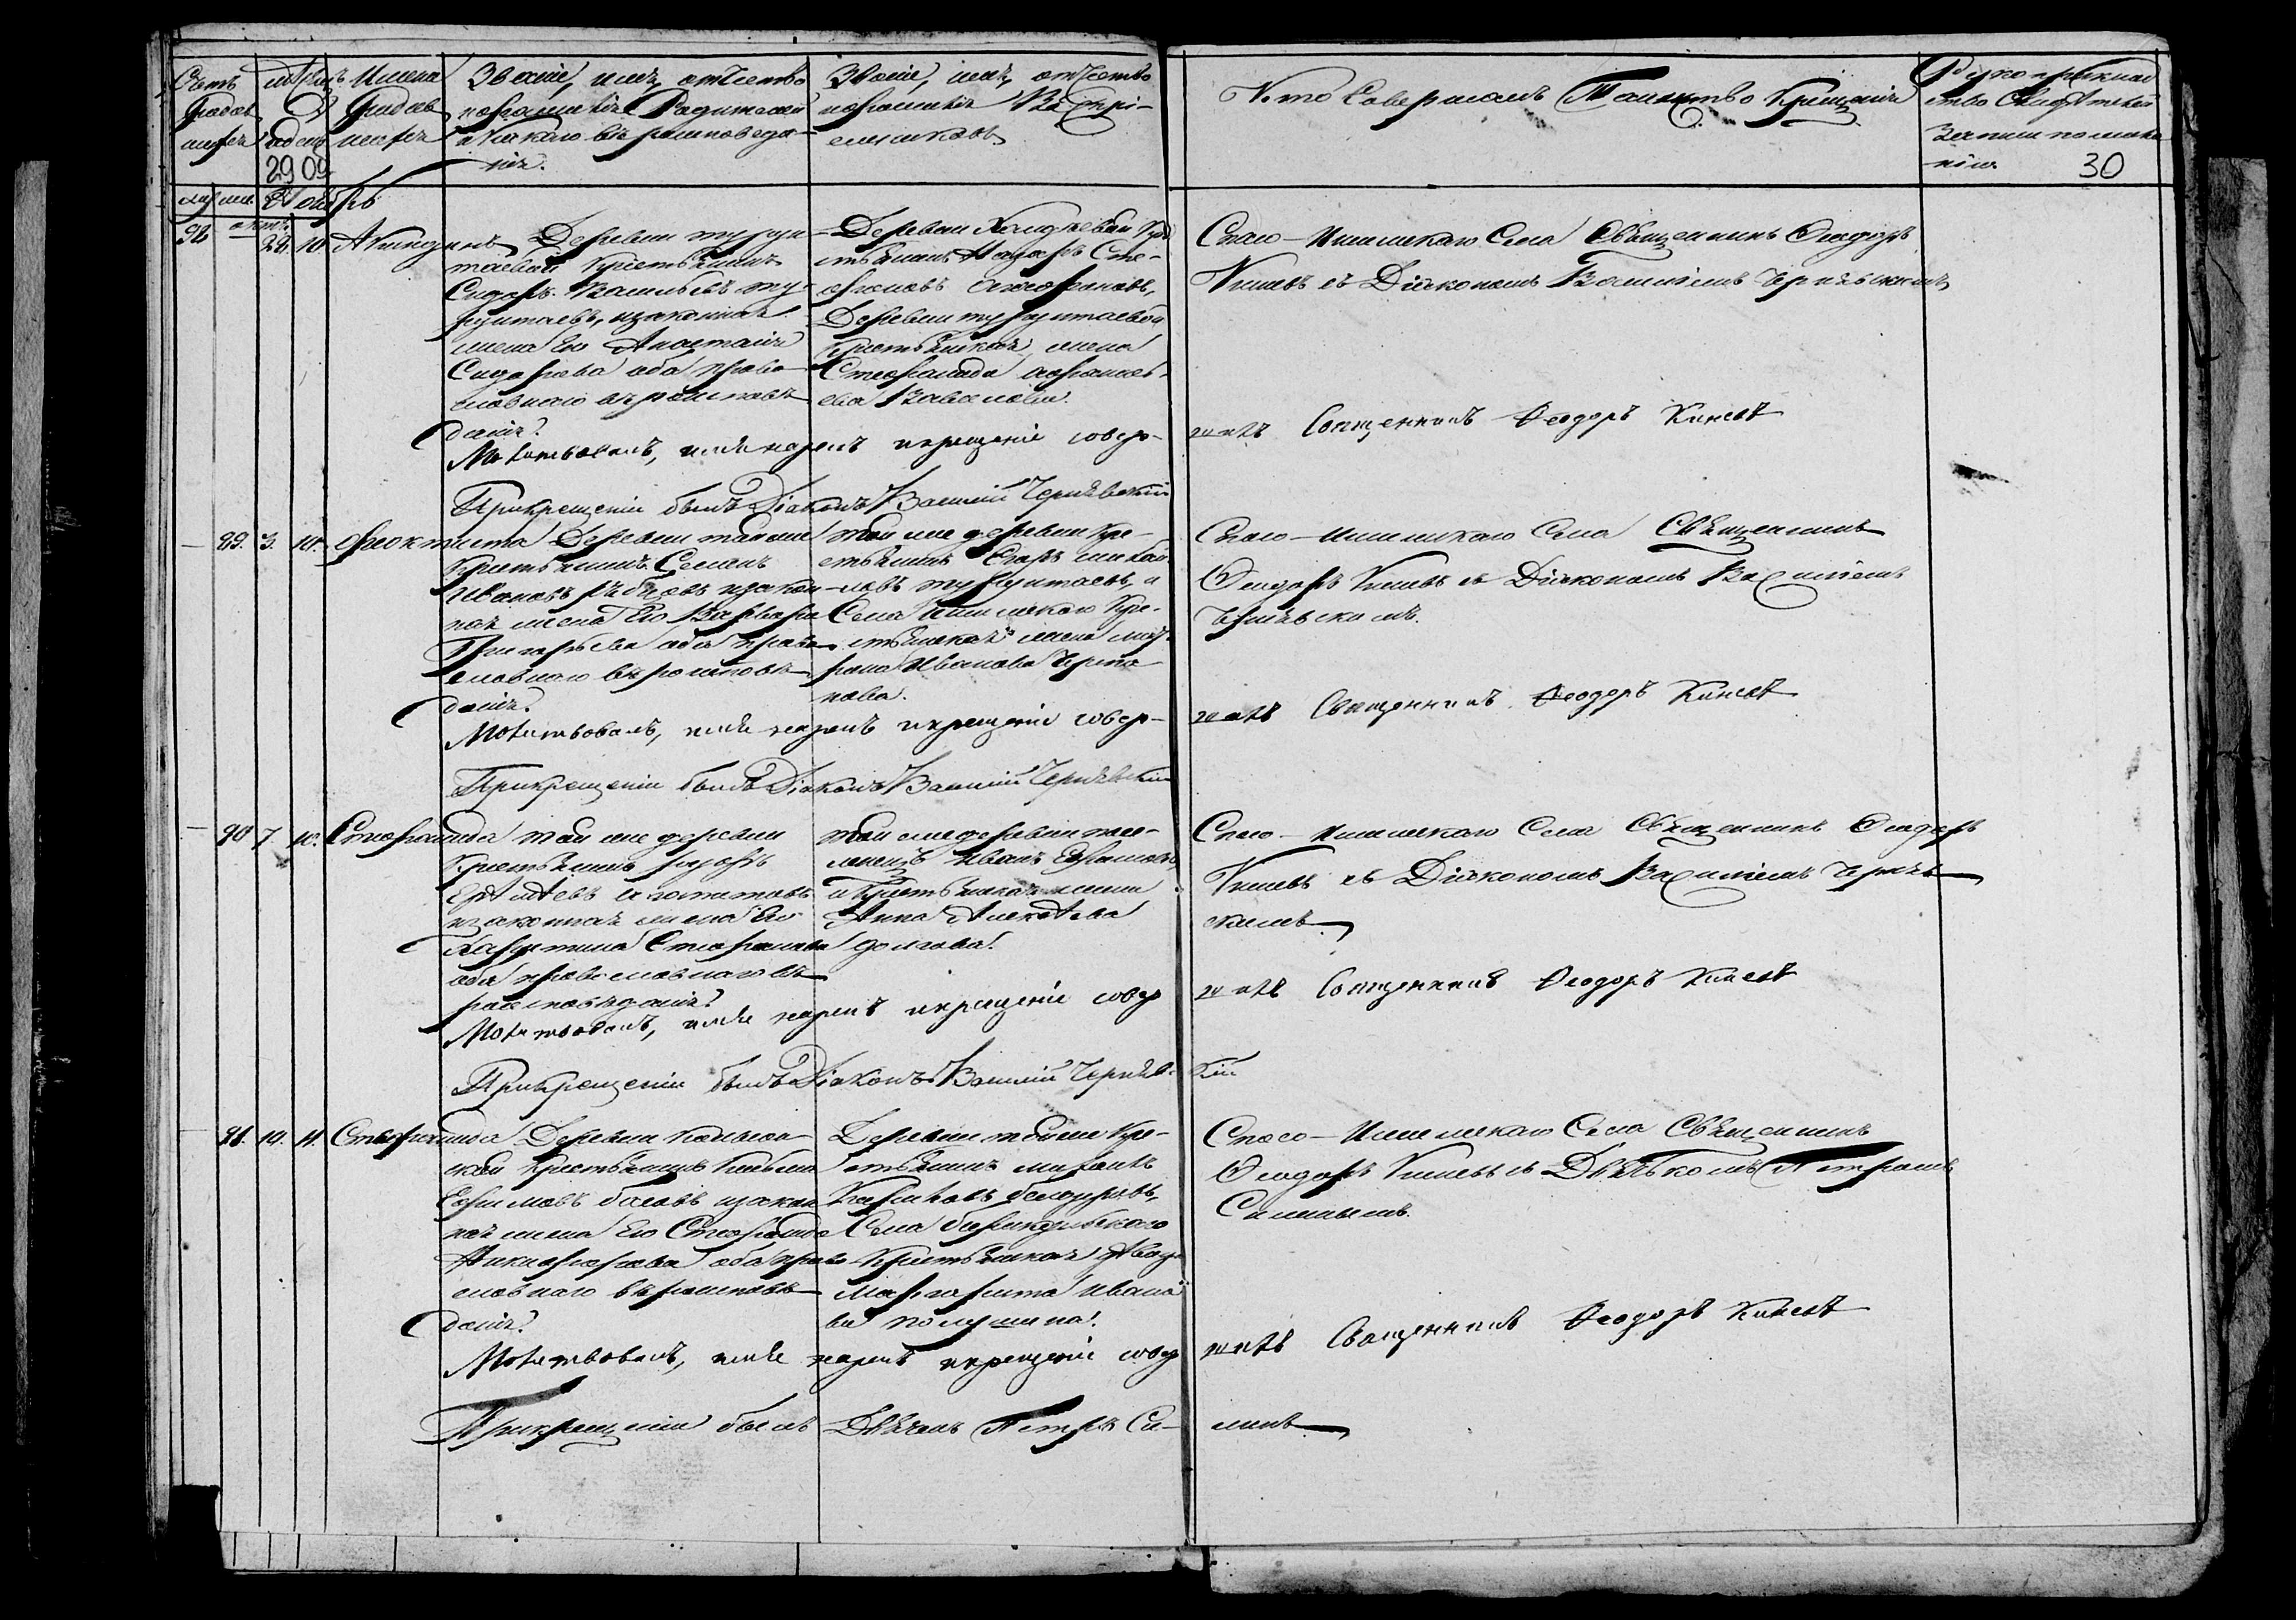 Счетъ
Родив
шихся
мѣсяцъ
и день
Имена
Родив
шихся
Званіе, имя, отчество
и фамилія Родителей
и какого вѣроисповеда-
нія.
Званіе, имя, отчество
и фамилія Воспрі-
емниковъ
Кто Совершалъ Таинство Крещенія
Рукоприклад
ство Свидѣтелей
записи по жела
нію.
30
2909
муж жен.
Октябрь
92 28. 10 Акиндинъ
Деревни Турун
таевой Крестьянинъ
Сидоръ Васильевъ Ту-
рунтаевъ, и законная
жена Его Анастасія
Сидорова оба право
славнаго вѣроисповѣ
данія.
Деревни
стьянинъ Назаръ Сте-
фановъ Агафоновъ,
Деревни Турунтаевой
Крестьянская жена
Стефанида
Вавилова.
Спасо-Ишимскаго Села Священникъ Феодоръ
Киневъ съ Діакономъ Василіемъ Чернявскимъ
Молитвовалъ, имя нарекъ и крещеніе совер-
шалъ Священникъ Феодоръ Киневъ
При крещеніи былъ Діаконъ Василій Чернявскій
89. 3. 10. Феоктиста
Деревни той же
Крестьянинъ Семенъ
Ивановъ Рябовъ и закон
ная жена Его Варвара
Григорьева оба право
славнаго вѣроисповѣ
данія.
той же деревни Кре-
стьянинъ Егоръ Михай
ловъ Турунтаевъ, и
Села Ишимскаго Кре-
стьянская жена Мат
рона Иванова Черто
нова.
Спасо-Ишимскаго Села Священникъ
Феодоръ Киневъ съ Діакономъ Василіемъ
Чернявскимъ.
Молитвовалъ, имя нарекъ и крещеніе совер-
шалъ Священникъ Феодоръ Киневъ
При крещеніи былъ Діаконъ Василій Чернявскій
90 7 10. Стефанида
той же деревни
Крестьянинъ
законная жена Его
Харитина Стефанова
оба православнаго вѣ
роисповѣданія.
той же деревни
Иванъ
и Крестьянская жена
Анна Алексѣева
Долгова.
Спасо-Ишимскаго Села Священникъ Феодоръ
Киневъ съ Діакономъ Василіемъ Черняв
скимъ
Молитвовалъ, имя нарекъ и крещеніе совер
шалъ Священникъ Феодоръ Киневъ
При крещеніи былъ Діаконъ Василій Чернявс-
кій
91. 10. 11. Стефанида
Деревни
ской Крестьянинъ
Ефимовъ Басовъ и закон
ная жена Его Стефанида
Никифорова оба право
славнаго вѣроисповѣ
данія.
Деревни той же Кре-
стьянинъ
Карповъ
Села Берикульскаго
Крестьянская вдова
Маргарита Ивано
ва Полушина.
Спасо-Ишимскаго Села Священникъ
Феодоръ Киневъ съ Дьячкомъ Петромъ
Силинымъ.
Молитвовалъ, имя нарекъ и крещеніе совер
шалъ Священникъ Феодоръ Киневъ
При крещеніи былъ Дьячекъ Петръ Си-
линъ